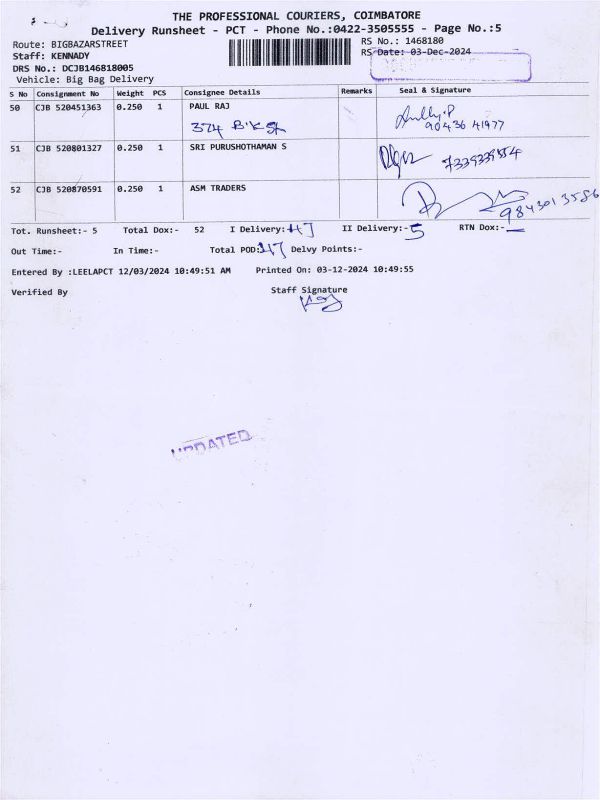 THE PROFESSIONAL COURIERS, COIMBATORE
Delivery Runsheet - PCT - Phone No.:0422-3505555 - Page No.:5
Route: BIGBAZARSTREET
RS No.: 1468180
Staff: KENNADY
RS Date: 03-Dec-2024
DRS No.: DCJB146818005
Vehicle: Big Bag Delivery
S No Consignment No Weight PCS Consignee Details Remarks Seal & Signature
50 CJB 520451363 0.250 1 PAUL RAJ
374 B.K St 90436 41977
51 CJB 520801327 0.250 1 SRI PURUSHOTHAMAN S
7339339554
52 CJB 520870591 0.250 1 ASM TRADERS
9843013586
Tot. Runsheet:- 5 Total Dox:- 52 I Delivery:- 47 II Delivery:- 5 RTN Dox:- —
Out Time:- In Time:- Total POD:- 47 Delvy Points:-
Entered By :LEELAPCT 12/03/2024 10:49:51 AM Printed On: 03-12-2024 10:49:55
Verified By Staff Signature
UPDATED